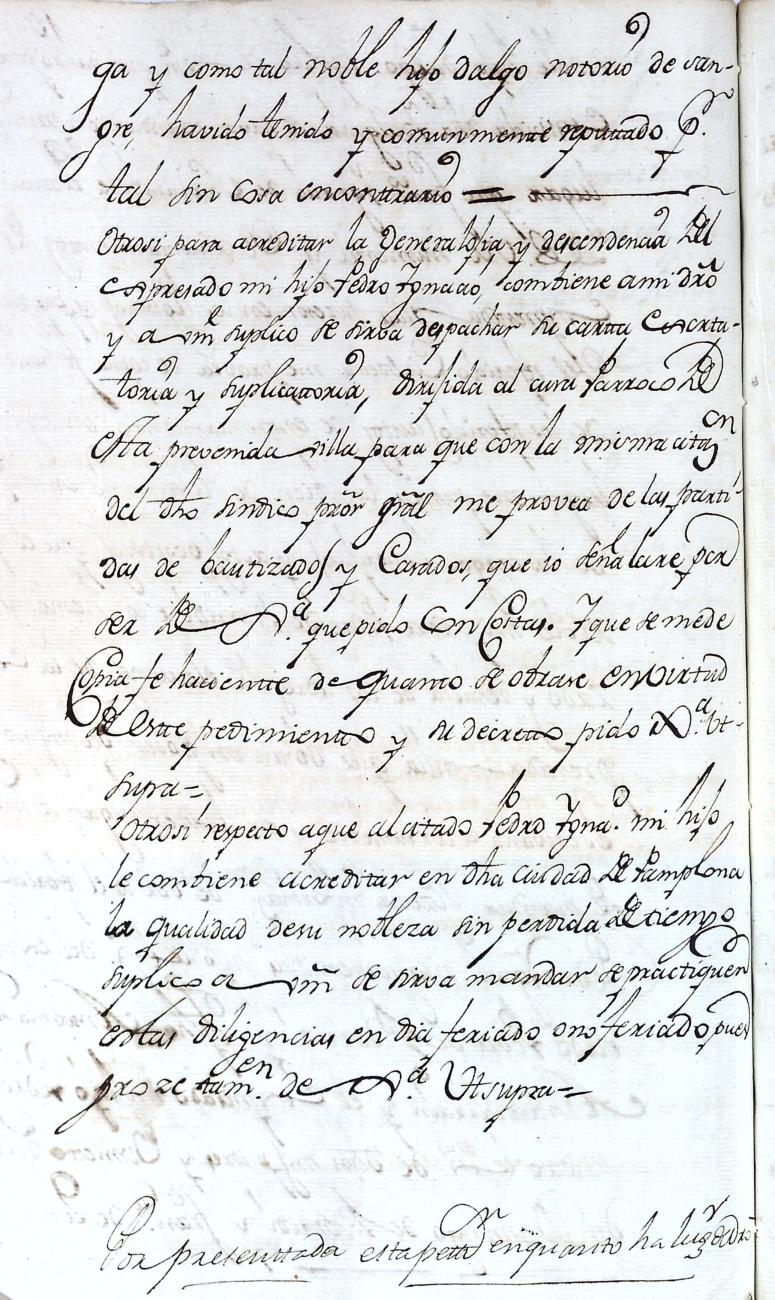 ga y como tal noble hijo dalgo notorio de san-
gre, havido tenido y comunmente reputtado pr.
tal sin cosa encontrario =
Otrosi para acreditar la Generalojia y descendencia del
expresado mi hijo Pedro Ygnacio, combiene a mi dro
y a vm suplico se sirva despachar su cartta Exorta-
toria y suplicattoria, dirijida al cura Parroco de
esta prevenida villa para que con la misma citazn
del dho sindico pror gral me provea de las parti-
das de bautizados y Casados, que io señalare por
ser de Xa. que pido con Costas. Y que se me de
Copia fe hacientte de quanto se obrare en virtud
de estte pedimientto y su decretto pido Xa. Ut-
supra =
Otrosi respecto aque al citado Pedro Ygnao. mi hijo
le combiene acreditar en dha ciudad de Pamplona
la qualidad de su nobleza sin perdida de tiempo
suplico a vm se sirva mandar se practiquen
estas diligencias en dia feriado o no feriado pues
proze tamen. de Xa. Ut supra =
Por presenttada esta pettn en quanto ha lugr de dro